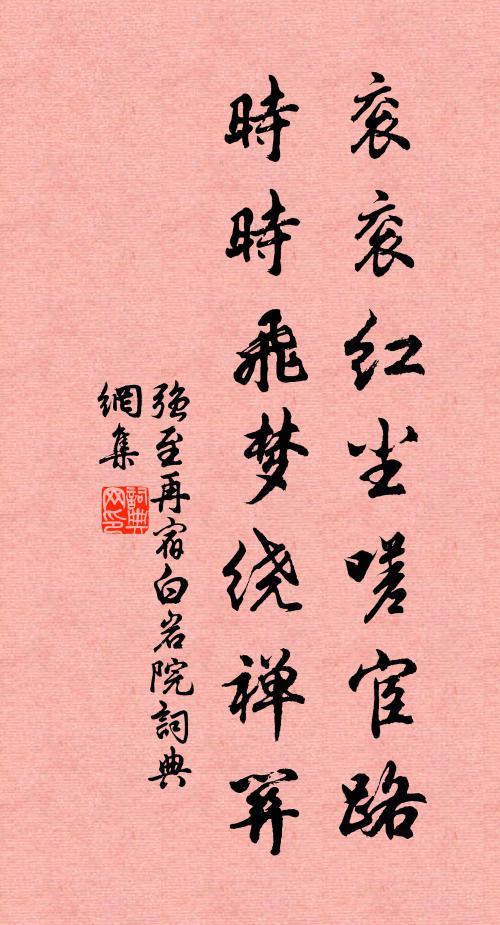 衮衮红尘嗟宦路
時時飛梦绕禅关
强至再宿白岩院詞典
網集
詞典网印